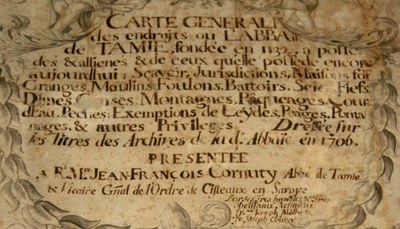 CARTE GENERALE
des endroits ou L'ABBAïe
de TAMIE, fondée en 1132, a possé-
des & allienes & de ceux quelle possede encore
aujourdhui; Sçavoir, Jurisdictions, Maisons for
Granges, Moulins, Foulons, Battoirs, Seie, Fiefs
Dimes, Censes, Montagnes, Pâqueages, Cour
d'Eau, Peches: Exemptions de Leydes, Péages, Ponta
nages, & autres Privileges. Dressée sur
les Titres des Archives de la d. Abbaïe en 1706.
PRESENTEE
A R. Mre JEAN-FRANÇOIS Cornuty Abbé de Tamié
& Vicaire Gñal de l'Ordre de Cisteaux en Savoye
Par ses tres humbles & tres
obeissans Religieux
fr. Joseph
fr. Joseph